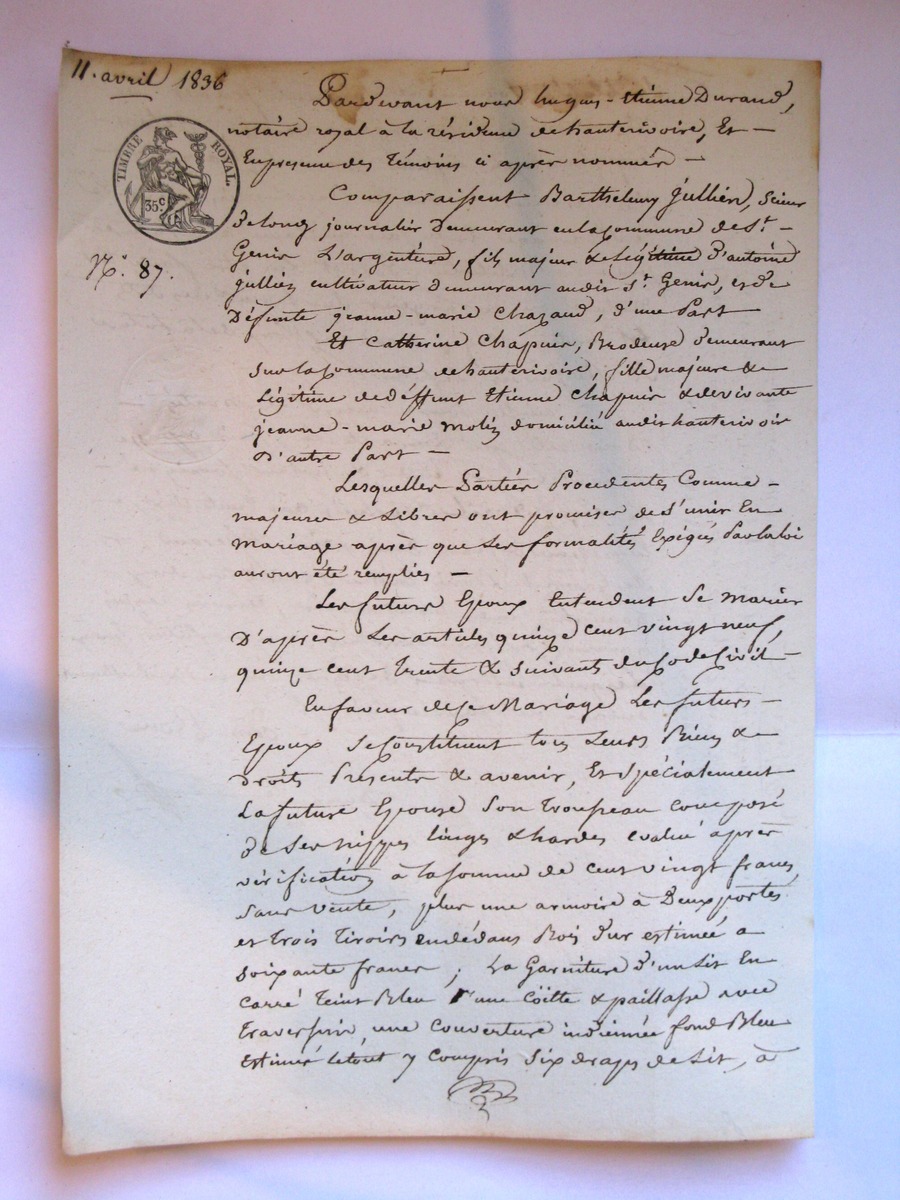 11. avril 1836
TIMBRE ROYAL.
35c
N°. 87.
Pardevant nous hugues-étienne Durand,
notaire royal à la résidence de hauterivoire, Et —
En presence des témoins ci après nommés —
Comparaissent Barthelemy Jullien, scieur
de long journalier Demeurant en la commune de St. —
Genis L'argentière, fils majeur & légitime d'antoine
jullien cultivateur demeurant audit St. Genis, et de
Défunte jeanne-marie Chazaud, d'une Part
Et Catherine Chapuis, Brodeuse demeurant
sur la Commune de hauterivoire, fille majeure &
Légitime de déffunt Etienne Chapuis & de vivante
jeanne-marie molin domiciliée audit hauterivoir
d'autre Part —
Lesquelles Parties Procedentes Comme —
majeures & Libres ont promises de s'unir En
Mariage après que Les formalités Exigés Par la loi
auront été remplies —
Les futurs Epoux Entendent Se Marier
D'après Les articles quinze cent vingt neuf,
quinze cent trente & suivants du Code Civil —
En faveur de ce Mariage Les futurs —
Epoux se Constituent tous Leurs Biens &
droits Présents & avenir, Et spécialement
La future Epouse Son trousseau composé
de Ses nippes linges & hardes evalué après
vérification à la somme de cent vingt francs,
sans vente, plus une armoire à Deux portes
et trois Tiroirs en dédans Bois dur estimée a
soixante francs ; La Garniture d'un Lit En
Carré Teint Bleu d'une Coïtte & paillasse avec
Traversin, une couverture indiennée fond Bleu
Estimés le tout y compris six draps de Lit, à